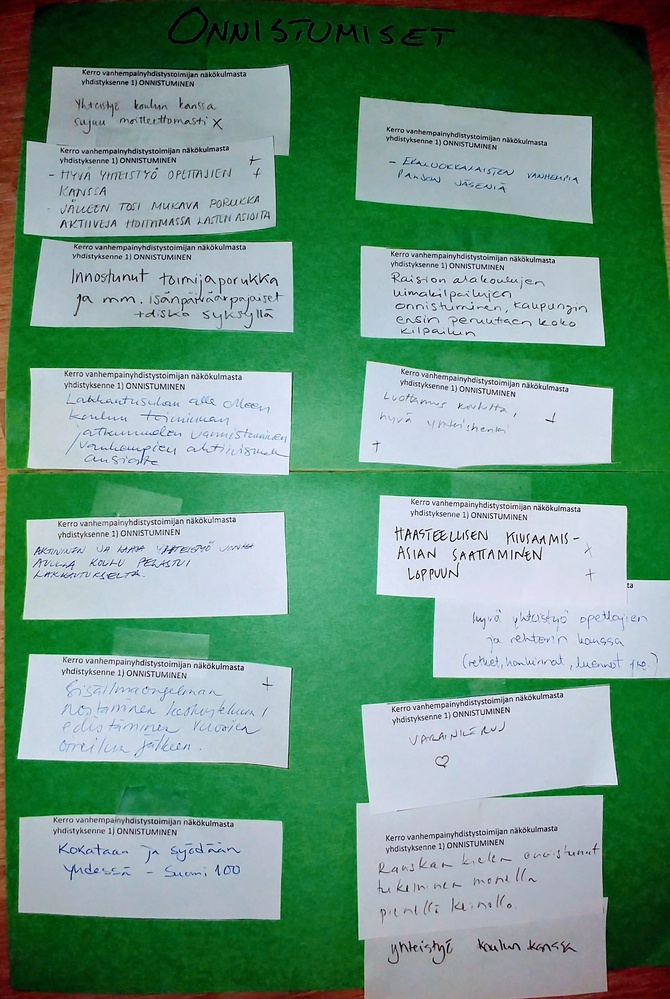 ONNISTUMISET
Kerro vanhempainyhdistystoimijan näkökulmasta
yhdistyksenne 1) ONNISTUMINEN
Yhteistyö koulun kanssa
sujuu moitteettomasti X
Kerro vanhempainyhdistystoimijan näkökulmasta
yhdistyksenne 1) ONNISTUMINEN
+
+
- HYVÄ YHTEISTYÖ OPETTAJIEN
KANSSA
- JÄLLEEN TOSI MUKAVA PORUKKA
AKTIIVEJA HOITAMASSA LASTEN ASIOITA
Kerro vanhempainyhdistystoimijan näkökulmasta
yhdistyksenne 1) ONNISTUMINEN
Innostunut toimijaporukka
ja mm. isänpäiväarpajaiset
+disko syksyllä
Kerro vanhempainyhdistystoimijan näkökulmasta
yhdistyksenne 1) ONNISTUMINEN
Lakkautusuhan alla olleen
koulun toiminnan
jatkumisen varmistaminen
vanhempien aktiivisuuden
ansiosta
Kerro vanhempainyhdistystoimijan näkökulmasta
yhdistyksenne 1) ONNISTUMINEN
AKTIIVINEN JA YHTEISTYÖ JONKA
AVULLA KOULU PELASTUI
LAKKAUTUKSELTA.
Kerro vanhempainyhdistystoimijan näkökulmasta
yhdistyksenne 1) ONNISTUMINEN
+
Sisäilmaongelman
nostaminen keskusteluun /
edistäminen vuosien
oireilun jälkeen.
Kerro vanhempainyhdistystoimijan näkökulmasta
yhdistyksenne 1) ONNISTUMINEN
Kokataan ja syödään
yhdessä - Suomi 100
Kerro vanhempainyhdistystoimijan näkökulmasta
yhdistyksenne 1) ONNISTUMINEN
- EKALUOKKALAISTEN VANHEMPIA
PALJON JÄSENIÄ
Kerro vanhempainyhdistystoimijan näkökulmasta
yhdistyksenne 1) ONNISTUMINEN
Raision alakoulujen
uimakilpailujen
onnistuminen, kaupungin
ensin peruuttaen koko
kilpailun
Kerro vanhempainyhdistystoimijan näkökulmasta
yhdistyksenne 1) ONNISTUMINEN
Luottamus koululta, +
hyvä yhteishenki
+
Kerro vanhempainyhdistystoimijan näkökulmasta
yhdistyksenne 1) ONNISTUMINEN
HAASTEELLISEN KIUSAAMIS-
ASIAN SAATTAMINEN X
LOPPUUN +
hyvä yhteistyö opettajien
ja rehtorin kanssa
(retket, hankinnat, luennot yms.)
Kerro vanhempainyhdistystoimijan näkökulmasta
yhdistyksenne 1) ONNISTUMINEN
VARAINKERUU
♡
Kerro vanhempainyhdistystoimijan näkökulmasta
yhdistyksenne 1) ONNISTUMINEN
Ranskan kielen onnistunut
tukeminen monella
pienellä keinolla.
yhteistyö koulun kanssa